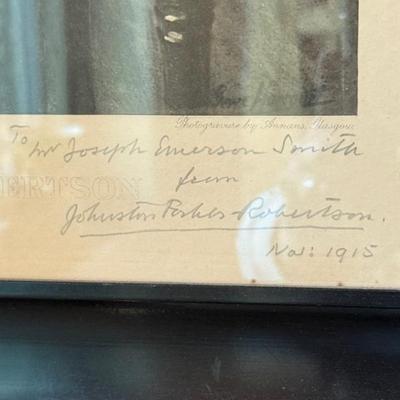 Photogravure by Annans, Glasgow
To Mr Joseph Emerson Smith
from
ERTSON
Johnston Forbes-Robertson.
Nov: 1915